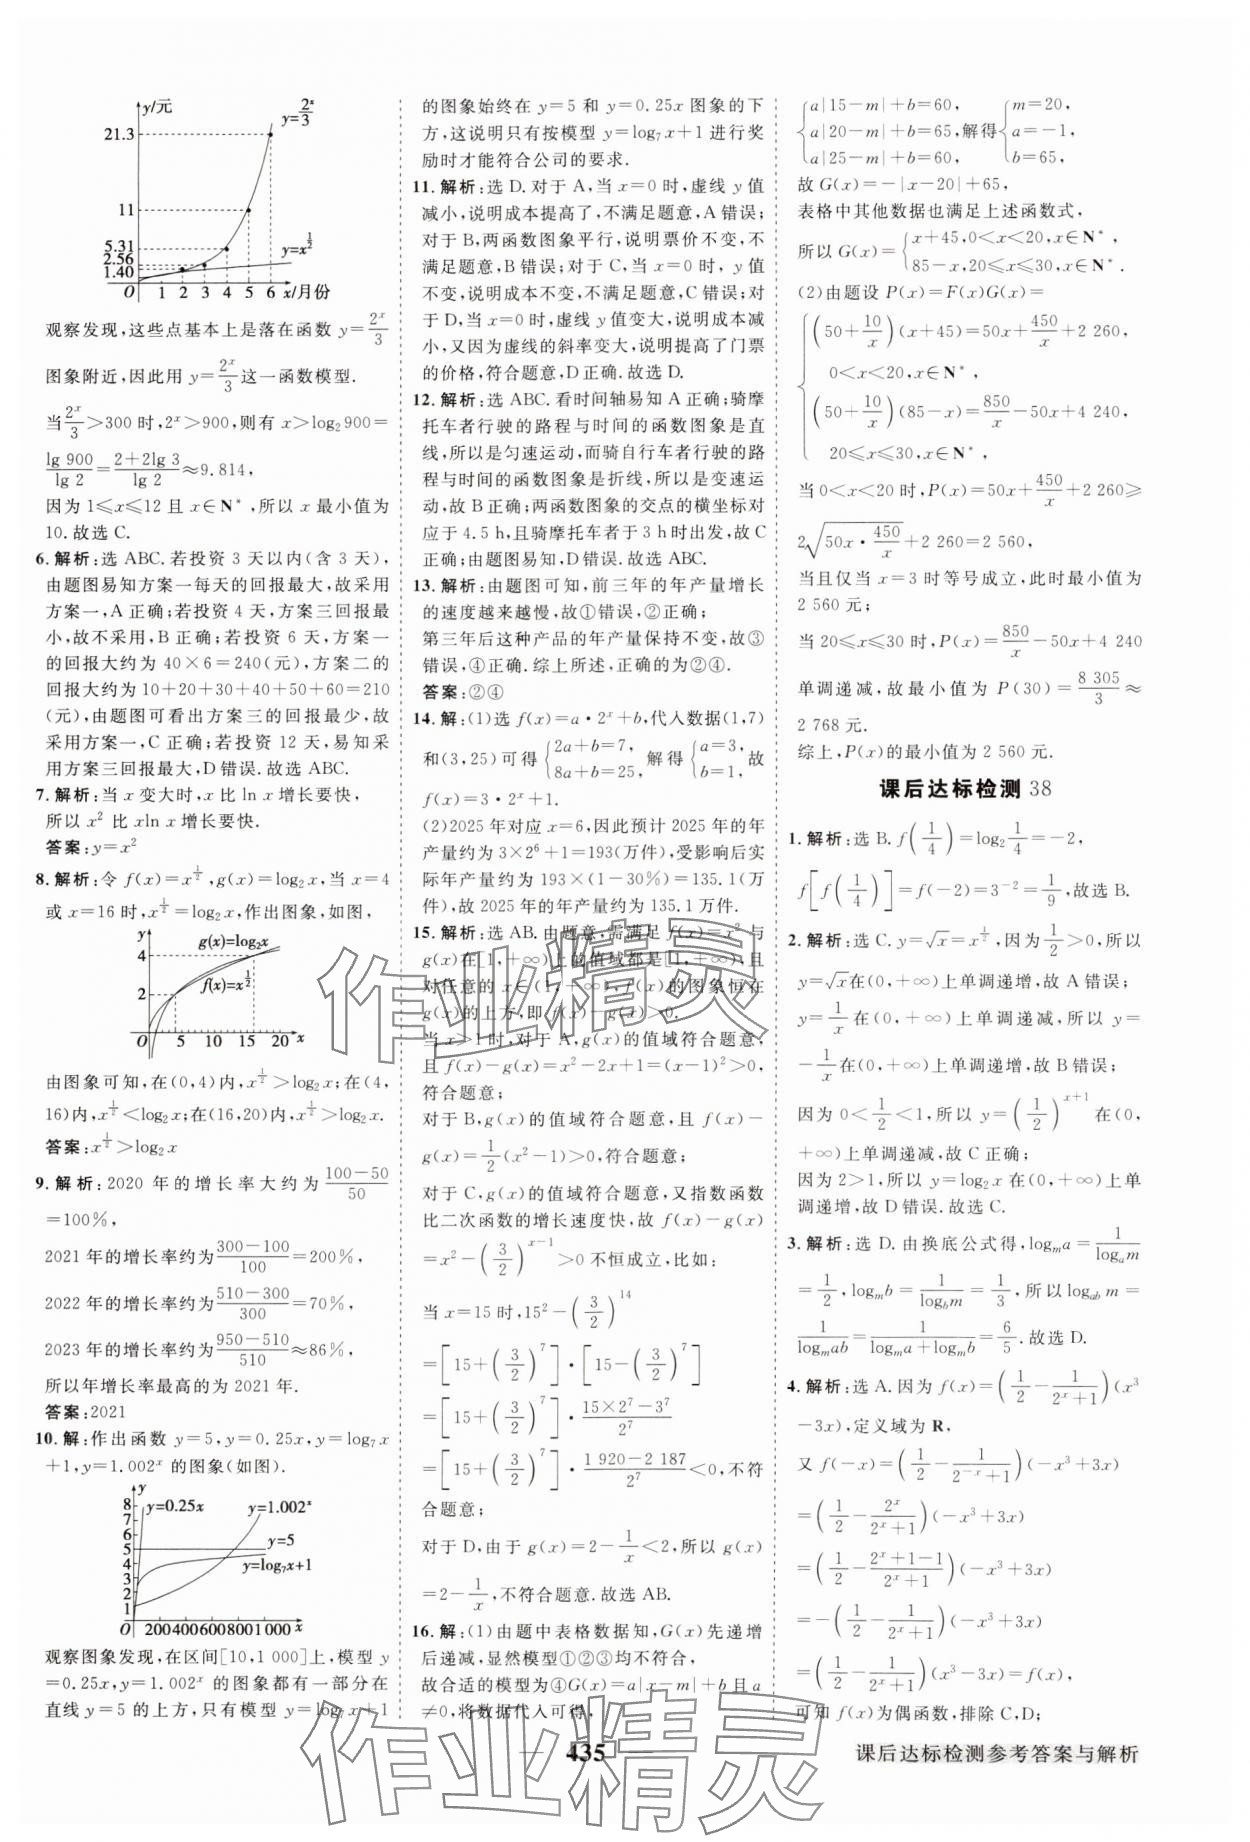 y/元
y=2ˣ/3
21.3
11
5.31
2.56
1.40
y=x^{1/2}
O 1 2 3 4 5 6 x/月份
观察发现,这些点基本上是落在函数 y=2ˣ/3
图象附近,因此用 y=2ˣ/3 这一函数模型.
当 2ˣ/3>300 时,2ˣ>900,则有 x>log₂900=
lg 900/lg 2=(2+2lg 3)/lg 2≈9.814,
因为 1≤x≤12 且 x∈N*,所以 x 最小值为
10.故选 C.
6.解析:选 ABC.若投资 3 天以内(含 3 天),
由题图易知方案一每天的回报最大,故采用
方案一,A 正确;若投资 4 天,方案三回报最
小,故不采用,B 正确;若投资 6 天,方案一
的回报大约为 40×6=240(元),方案二的
回报大约为 10+20+30+40+50+60=210
(元),由题图可看出方案三的回报最少,故
采用方案一,C 正确;若投资 12 天,易知采
用方案三回报最大,D 错误.故选 ABC.
7.解析:当 x 变大时,x 比 ln x 增长要快,
所以 x² 比 xln x 增长要快.
答案:y=x²
8.解析:令 f(x)=x^{1/2},g(x)=log₂x,当 x=4
或 x=16 时,x^{1/2}=log₂x,作出图象,如图,
y
g(x)=log₂x
4
f(x)=x^{1/2}
2
O 5 10 15 20 x
由图象可知,在(0,4)内,x^{1/2}>log₂x;在(4,
16)内,x^{1/2}<log₂x;在(16,20)内,x^{1/2}>log₂x.
答案:x^{1/2}>log₂x
9.解析:2020 年的增长率大约为 (100-50)/50
=100%,
2021 年的增长率约为 (300-100)/100=200%,
2022 年的增长率约为 (510-300)/300=70%,
2023 年的增长率约为 (950-510)/510≈86%,
所以年增长率最高的为 2021 年.
答案:2021
10.解:作出函数 y=5,y=0.25x,y=log₇x
+1,y=1.002ˣ 的图象(如图).
y
8
7
6
5
4
3
2
1
y=0.25x
y=1.002ˣ
y=5
y=log₇x+1
O 200 400 600 800 1 000 x
观察图象发现,在区间[10,1 000]上,模型 y
=0.25x,y=1.002ˣ 的图象都有一部分在
直线 y=5 的上方,只有模型 y=log₇x+1
的图象始终在 y=5 和 y=0.25x 图象的下
方,这说明只有按模型 y=log₇x+1 进行奖
励时才能符合公司的要求.
11.解析:选 D.对于 A,当 x=0 时,虚线 y 值
减小,说明成本提高了,不满足题意,A 错误;
对于 B,两函数图象平行,说明票价不变,不
满足题意,B 错误;对于 C,当 x=0 时,y 值
不变,说明成本不变,不满足题意,C 错误;对
于 D,当 x=0 时,虚线 y 值变大,说明成本减
小,又因为虚线的斜率变大,说明提高了门票
的价格,符合题意,D 正确.故选 D.
12.解析:选 ABC.看时间轴易知 A 正确;骑摩
托车者行驶的路程与时间的函数图象是直
线,所以是匀速运动,而骑自行车者行驶的路
程与时间的函数图象是折线,所以是变速运
动,故 B 正确;两函数图象的交点的横坐标对
应于 4.5 h,且骑摩托车者于 3 h 时出发,故 C
正确;由题图易知,D 错误.故选 ABC.
13.解析:由题图可知,前三年的年产量增长
的速度越来越慢,故①错误,②正确;
第三年后这种产品的年产量保持不变,故③
错误,④正确.综上所述,正确的为②④.
答案:②④
14.解:(1)选 f(x)=a·2ˣ+b,代入数据(1,7)
和(3,25)可得 {2a+b=7, 8a+b=25, 解得 {a=3, b=1, 故
f(x)=3·2ˣ+1.
(2)2025 年对应 x=6,因此预计 2025 年的年
产量约为 3×2⁶+1=193(万件),受影响后实
际年产量约为 193×(1-30%)=135.1(万
件),故 2025 年的年产量约为 135.1 万件.
15.解析:选 AB.由题意,需满足 f(x)=x² 与
g(x)在[1,+∞)上的值域都是[1,+∞),且
对任意的 x∈(1,+∞),f(x)的图象恒在
g(x)的上方,即 f(x)-g(x)>0.
当 x>1 时,对于 A,g(x)的值域符合题意,
且 f(x)-g(x)=x²-2x+1=(x-1)²>0,
符合题意;
对于 B,g(x)的值域符合题意,且 f(x)-
g(x)=1/2(x²-1)>0,符合题意;
对于 C,g(x)的值域符合题意,又指数函数
比二次函数的增长速度快,故 f(x)-g(x)
=x²-(3/2)^{x-1}>0 不恒成立,比如:
当 x=15 时,15²-(3/2)^{14}
=[15+(3/2)⁷]·[15-(3/2)⁷]
=[15+(3/2)⁷]·(15×2⁷-3⁷)/2⁷
=[15+(3/2)⁷]·(1 920-2 187)/2⁷<0,不符
合题意;
对于 D,由于 g(x)=2-1/x<2,所以 g(x)
=2-1/x,不符合题意.故选 AB.
16.解:(1)由题中表格数据知,G(x)先递增
后递减,显然模型①②③均不符合,
故合适的模型为④G(x)=a|x-m|+b 且 a
≠0,将数据代入可得,
{a|15-m|+b=60, a|20-m|+b=65, a|25-m|+b=60, 解得 {m=20, a=-1, b=65,
故 G(x)=-|x-20|+65,
表格中其他数据也满足上述函数式,
所以 G(x)={x+45,0<x<20,x∈N*, 85-x,20≤x≤30,x∈N*.
(2)由题设 P(x)=F(x)G(x)=
{(50+10/x)(x+45)=50x+450/x+2 260,
0<x<20,x∈N*,
(50+10/x)(85-x)=850/x-50x+4 240,
20≤x≤30,x∈N*,
当 0<x<20 时,P(x)=50x+450/x+2 260≥
2√(50x·450/x)+2 260=2 560,
当且仅当 x=3 时等号成立,此时最小值为
2 560 元;
当 20≤x≤30 时,P(x)=850/x-50x+4 240
单调递减,故最小值为 P(30)=8 305/3≈
2 768 元.
综上,P(x)的最小值为 2 560 元.
课后达标检测 38
1.解析:选 B.f(1/4)=log₂1/4=-2,
f[f(1/4)]=f(-2)=3⁻²=1/9,故选 B.
2.解析:选 C.y=√x=x^{1/2},因为 1/2>0,所以
y=√x在(0,+∞)上单调递增,故 A 错误;
y=1/x 在(0,+∞)上单调递减,所以 y=
-1/x在(0,+∞)上单调递增,故 B 错误;
因为 0<1/2<1,所以 y=(1/2)^{x+1} 在(0,
+∞)上单调递减,故 C 正确;
因为 2>1,所以 y=log₂x 在(0,+∞)上单
调递增,故 D 错误.故选 C.
3.解析:选 D.由换底公式得,logₘa=1/logₐm
=1/2,logₘb=1/log_b m=1/3,所以 log_{ab} m=
1/logₘab=1/(logₘa+logₘb)=6/5.故选 D.
4.解析:选 A.因为 f(x)=(1/2-1/(2ˣ+1))(x³
-3x),定义域为 R,
又 f(-x)=(1/2-1/(2⁻ˣ+1))(-x³+3x)
=(1/2-2ˣ/(2ˣ+1))(-x³+3x)
=(1/2-(2ˣ+1-1)/(2ˣ+1))(-x³+3x)
=-(1/2-1/(2ˣ+1))(-x³+3x)
=(1/2-1/(2ˣ+1))(x³-3x)=f(x),
可知 f(x)为偶函数,排除 C,D;
作业精灵
作业精灵
435
课后达标检测参考答案与解析